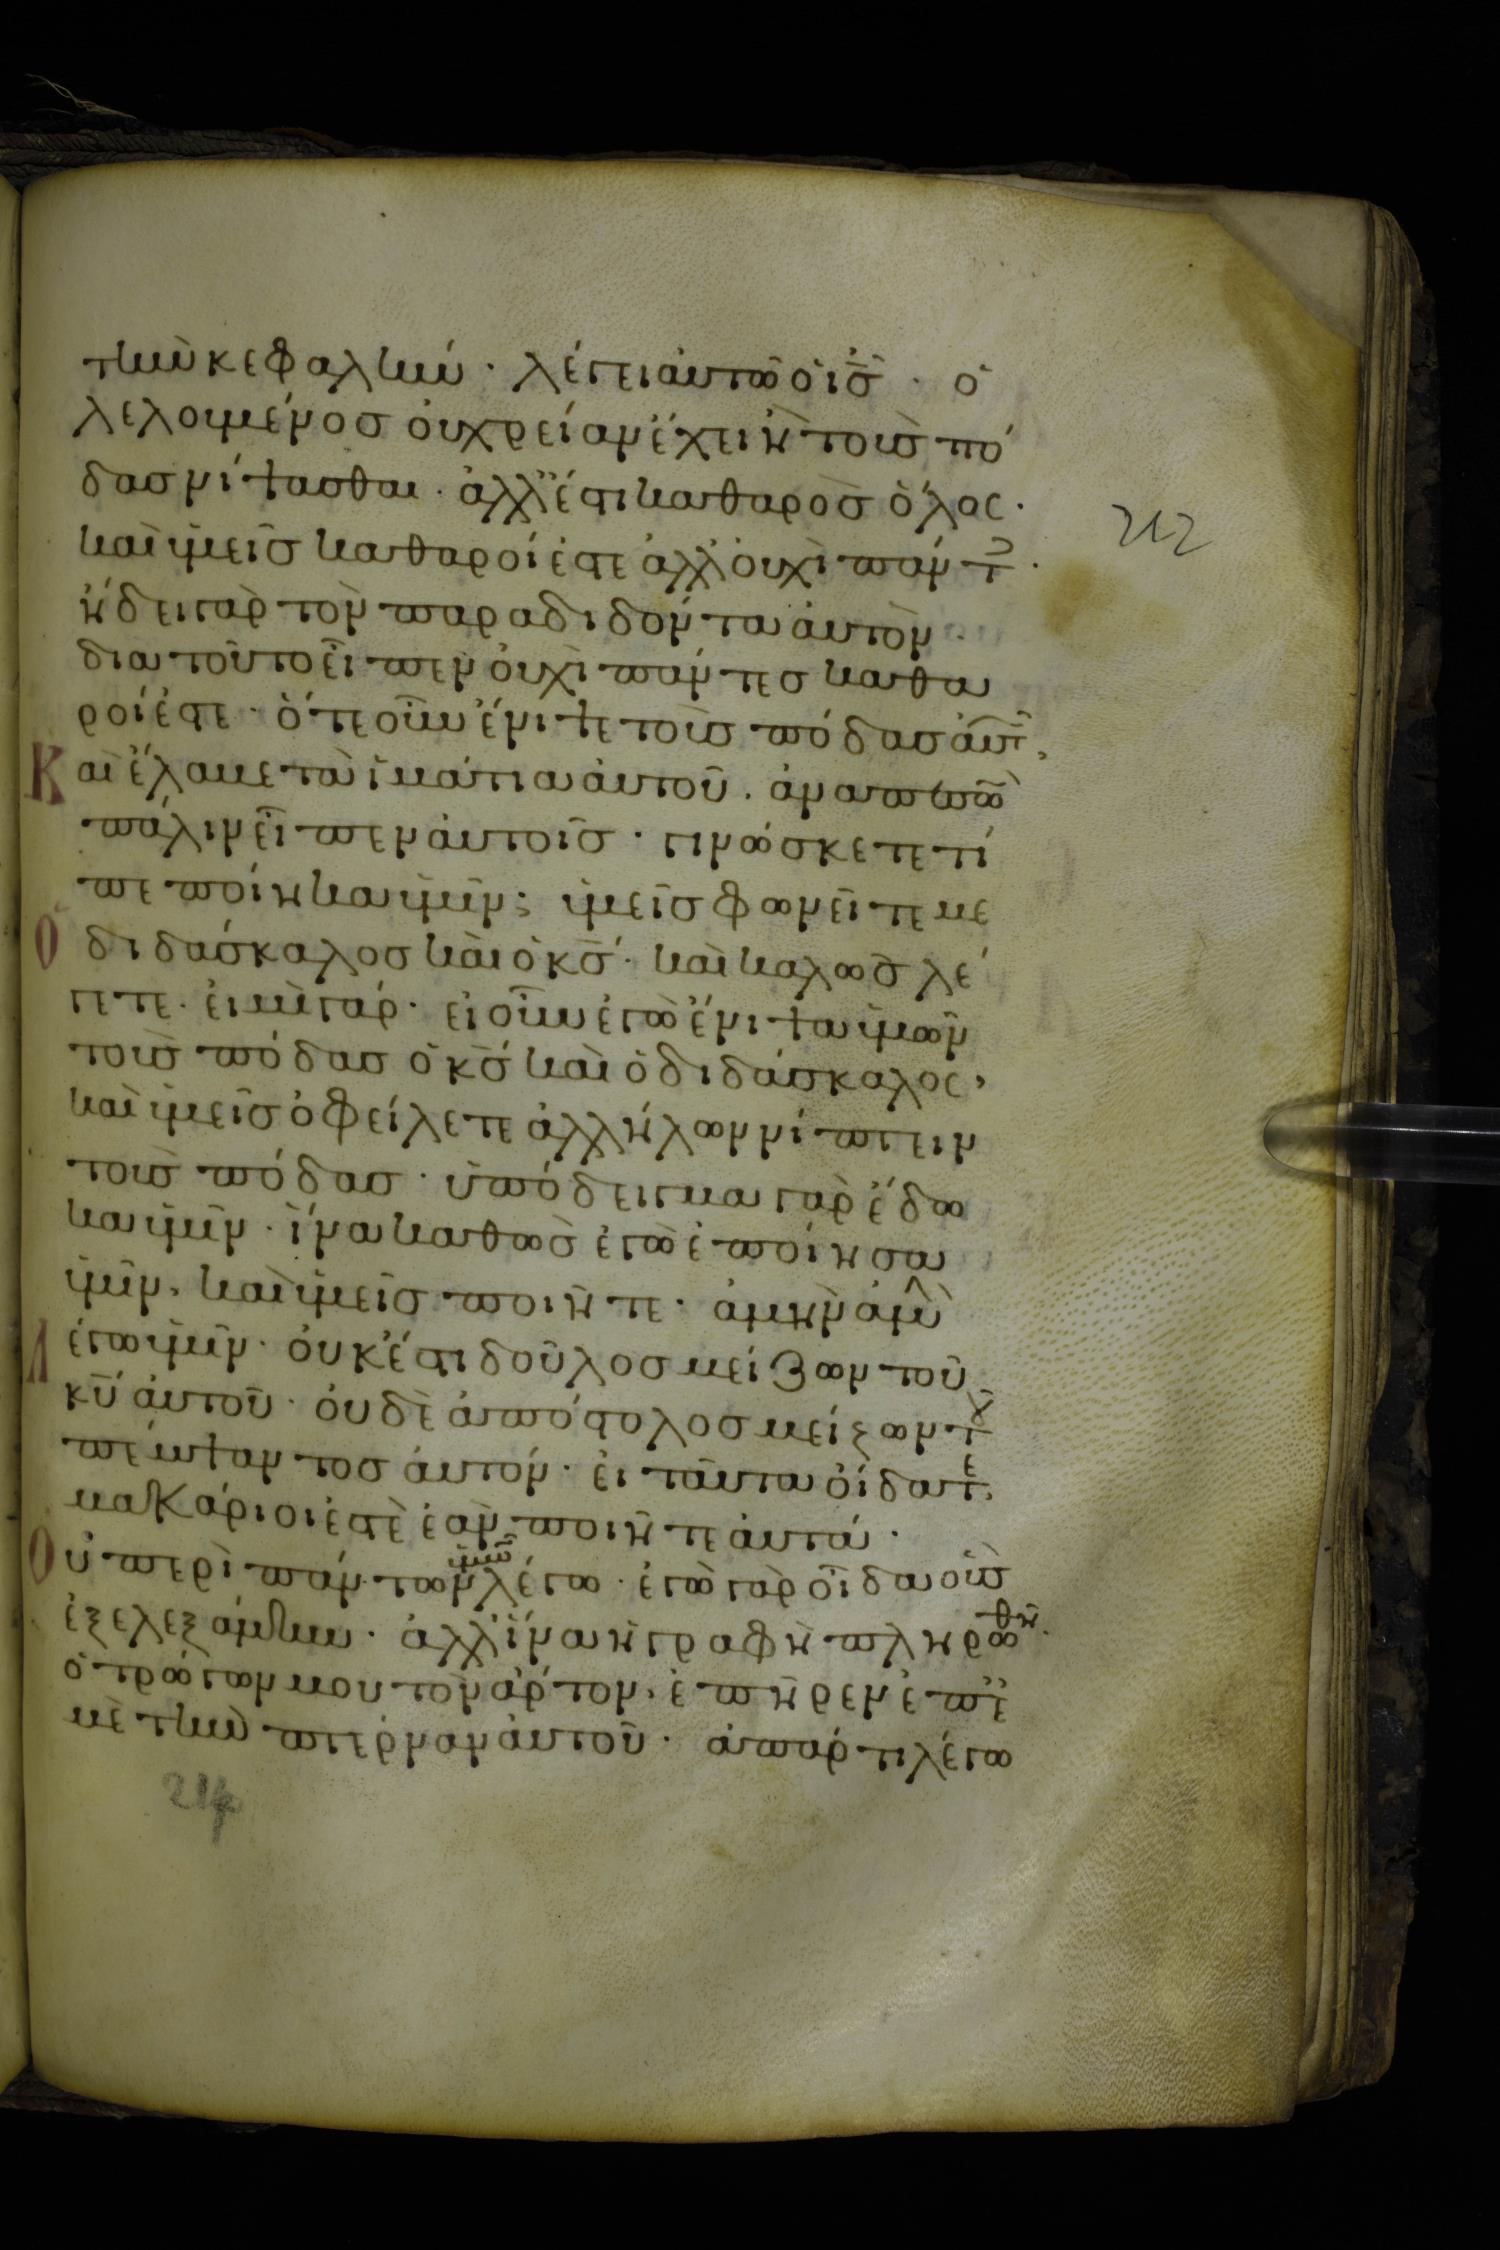 τὴν κεφαλήν · λέγει ἀυτῶ ὁ ις̅ · ὁ
λελουμένος ὀυ χρείαν ἔχει ἢ τοὺς πό
δας νίψασθαι · ἀλλ' ἔστι καθαρὸς ὅλος ·
212
καὶ ὑμεῖς καθαροί ἐστε ἀλλ' ὀυχὶ πάντ ·
ἤδει γὰρ τὸν παραδιδόντα ἀυτὸν ·
δια τοῦτο εἶπεν ὀυχὶ πάντες καθα
ροί ἐστε · ὅτε οὖν ἔνιψε τοὺς πόδας ἀυτ,
Καὶ ἔλαβε τὰ ἱμάτια ἀυτοῦ . ἀναπεσὼ
πάλιν εἶπεν ἀυτοῖς · γινώσκετε τί
πεποίηκα ὑμῖν; ὑμεῖς φωνεῖτε με
Ὁ διδάσκαλος καὶ ὁ κς̅ · καὶ καλῶς λέ
γετε · ἐιμὶ γάρ · ἐι οὖν ἐγὼ ἔνιψα ὑμῶν
τοὺς πόδας ὁ κς̅ καὶ ὁ διδάσκαλος,
καὶ ὑμεῖς ὀφείλετε ἀλλήλων νίπτειν
τοὺς πόδας · ὑπόδειγμα γὰρ ἔδω
κα ὑμῖν · ἵνα καθὼς ἐγὼ ἐποίησα
ὑμῖν, καὶ ὑμεῖς ποιῆτε · ἀμὴν ἀμὴ
Λέγω ὑμῖν · ὀυκ ἔστι δοῦλος μείζων τοῦ
κυ̅ ἀυτοῦ · ὀυδὲ ἀπόστολος μείζων τ
πέμψαντος ἀυτόν · ἐι ταῦτα ὀίδατε,
μακάριοι ἐστὲ ἐὰν ποιῆτε ἀυτά ·
Ὀυ περὶ πάντων ὑμῶ λέγω · ἐγὼ γὰρ οἶδα οὓς
ἐξελεξάμην · ἀλλ' ἵνα ἡ γραφὴ πληρωθῆ ·
ὁ τρώγων μου τὸν ἄρτον, ἐπῆρεν ἐπ' ἐ
μὲ τὴν πτέρναν ἀυτοῦ · ἀπάρτι λέγω
214